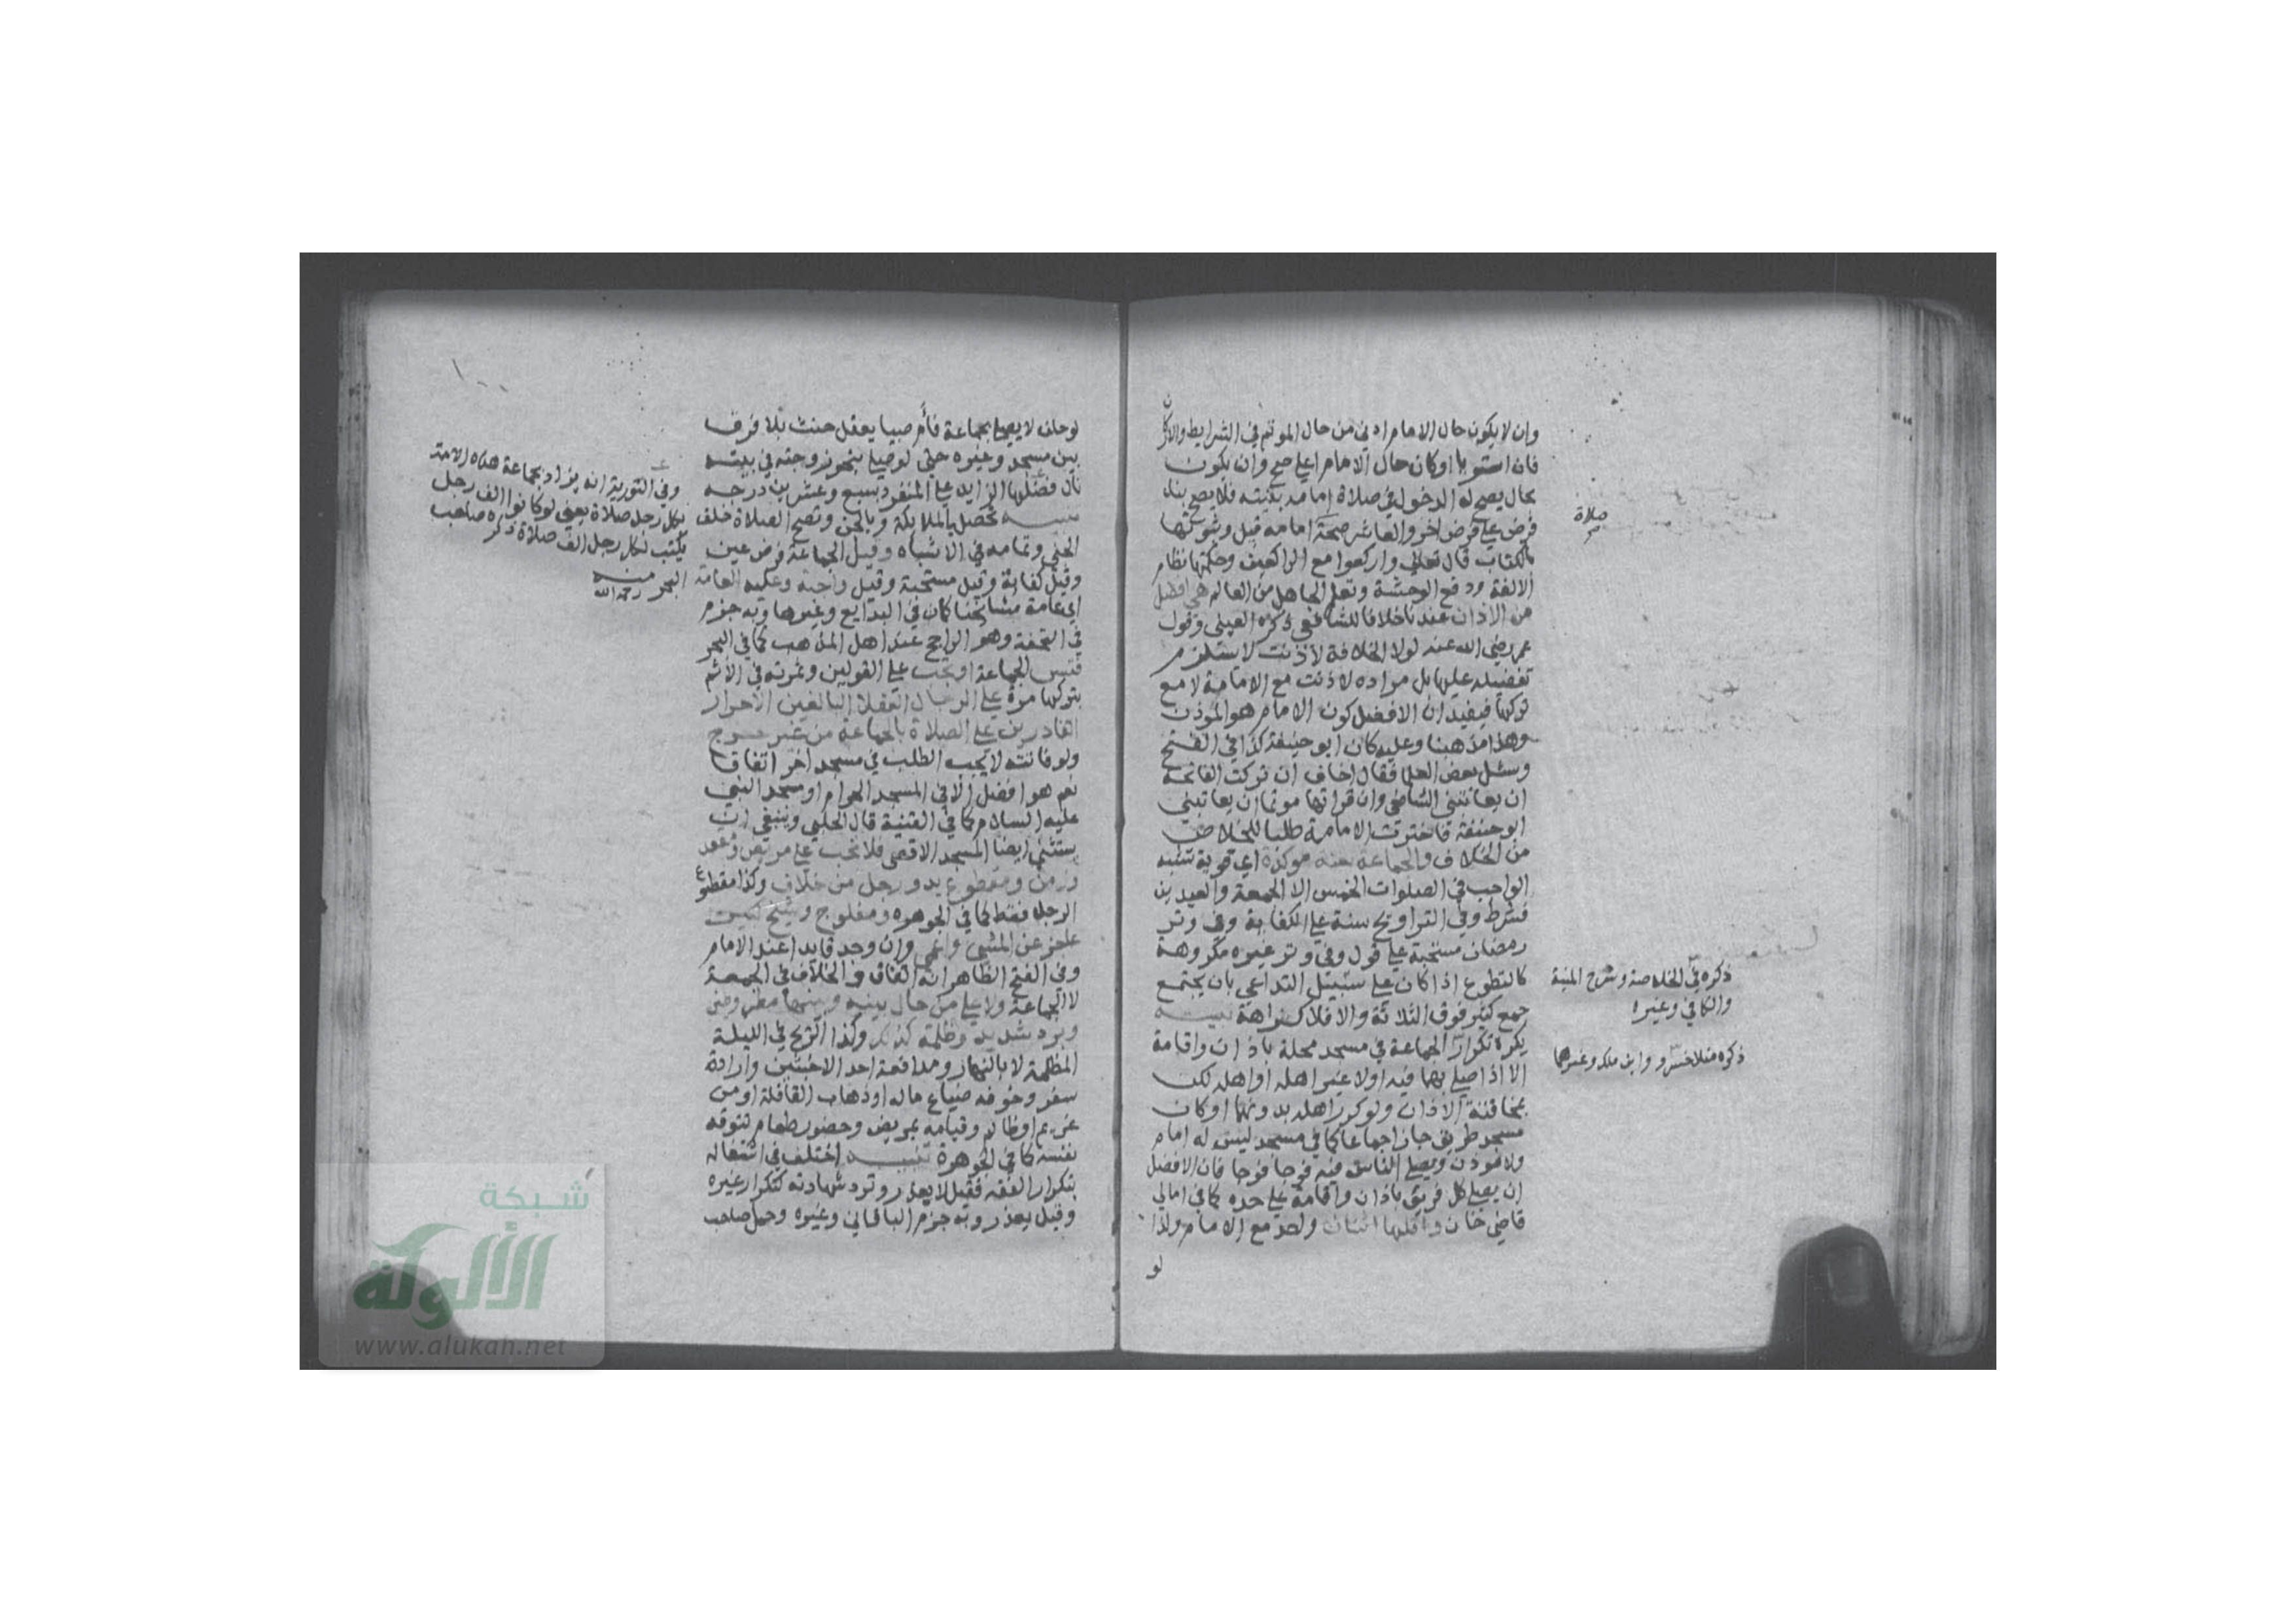 وان لا يكون حال الامام ادنى من حال الموتم في الشرايط والاركان
فان استويا او كان حال الامام اعلى صح وان يكون
بحال يصح له الدخول في صلاة امامه بنيته فلا يصح بناء
فرض على فرض اخر والعاشر صحة امامه قبل وثبوتها
بالكتاب قال تعالى واركعوا مع الراكعين وحكمتها نظام
الالفة ودفع الوحشة وتعلم الجاهل من العالم هي افضل
من الاذان عندنا خلافا للشافعي ذكره العيني وقول
عمر رضي الله عنه لولا الخلافة لاذنت لا يستلزم
تفضيله عليها بل مراده لاذنت مع الامامة لا مع
تركها فيفيد ان الافضل كون الامام هو الموذن
وهذا مذهبنا وعليه كان ابو حنيفة كذا في الفتح
وسئل بعض العلما فقال اخاف ان تركت الفاتحة
ان يعاتبني الشافعي وان قراتها موتما ان يعاتبني
ابو حنيفة فاخترت الامامة طلبا للخلاص
من الخلاف والجماعة سنة موكدة اي قوية تشبه
الواجب في الصلوات الخمس الا الجمعة والعيدين
فشرط وفي التراويح سنة على الكفاية وفي وتر
رمضان مستحبة على قول وفي وتر غيره مكروهة
كالتطوع اذا كان على سبيل التداعي بان يجتمع
جمع كثير فوق الثلاثة والا فلا كراهة تنبيه
يكره تكرار الجماعة في مسجد محلة باذان واقامة
الا اذا صلى بهما فيه اولا غير اهله او اهله لكن
بمخافتة الاذان ولو كرر اهله بدونهما او كان
مسجد طريق جاز اجماعا كما في مسجد ليس له امام
ولا موذن ويصلي الناس فيه فوجا فوجا فان الافضل
ان يصلي كل فريق باذان واقامة على حده كما في امالي
قاضي خان واقلها اثنان واحد مع الامام ولذا
لو
صلاة
ذكره في الخلاصة وشرح المنية
والكافي وغيره
ذكره منلا خسرو وابن ملك وغيرهما
١٠٠
لو حلف لا يصلي بجماعة فأم صبيا يعقل حنث بلا فرق
بين مسجد وغيره حتى لو صلى بنحو زوجته في بيته
نال فضلها الزايد على المنفرد بسبع وعشرين درجه
تحصل بالملايكة وبالجن وتصح الصلاة خلف
الجني وتمامه في الاشباه وقيل الجماعة فرض عين
وقيل كفاية وقيل مستحبة وقيل واجبة وعليه العامة
اي عامة مشايخنا كما في البدايع وغيرها وبه جزم
في التحفة وهو الراجح عند اهل المذهب كما في البحر
فتسن الجماعة او تجب على القولين وثمرته في الاثم
بتركها مرة على الرجال العقلا البالغين الاحرار
القادرين على الصلاة بالجماعة من غير حرج
ولو فاتته لا يجب الطلب في مسجد اخر اتفاقا
نعم هو افضل الا في المسجد الحرام او مسجد النبي
عليه السلام كما في القنية قال الحلبي وينبغي ان
يستثنى ايضا المسجد الاقصى فلا تجب على مريض ومقعد
وزمن ومقطوع يد ورجل من خلاف وكذا مقطوع
الرجل فقط كما في الجوهره ومفلوج وشيخ كبير
عاجز عن المشي واعمى وان وجد قايدا عند الامام
وفي الفتح الظاهر انه اتفاق والخلاف في الجمعة
لا الجماعة ولا على من حال بينه وبينها مطر وطين
وبرد شديد وظلمة كذلك وكذا الريح في الليلة
المظلمة لا بالنهار ومدافعة احد الاخبثين وارادة
سفر وخوفه ضياع ماله او ذهاب القافلة او من
غريم او ظالم وقيامه بمريض وحضور طعام تتوقه
نفسه كما في الجوهرة تنبيه اختلف في اشتغاله
بتكرار الفقه فقيل لا يعذر وترد شهادته كتكرار غيره
وقيل يعذر وبه جزم الباقاني وغيره وحمل صاحب
وفي التورية انه يزاد بجماعة هذه الامة
بكل رجل صلاة يعني لو كانوا الف رجل
يكتب لكل رجل الف صلاة ذكره صاحب
البحر منه رحمه الله
شبكة
الألوكة
www.alukah.net